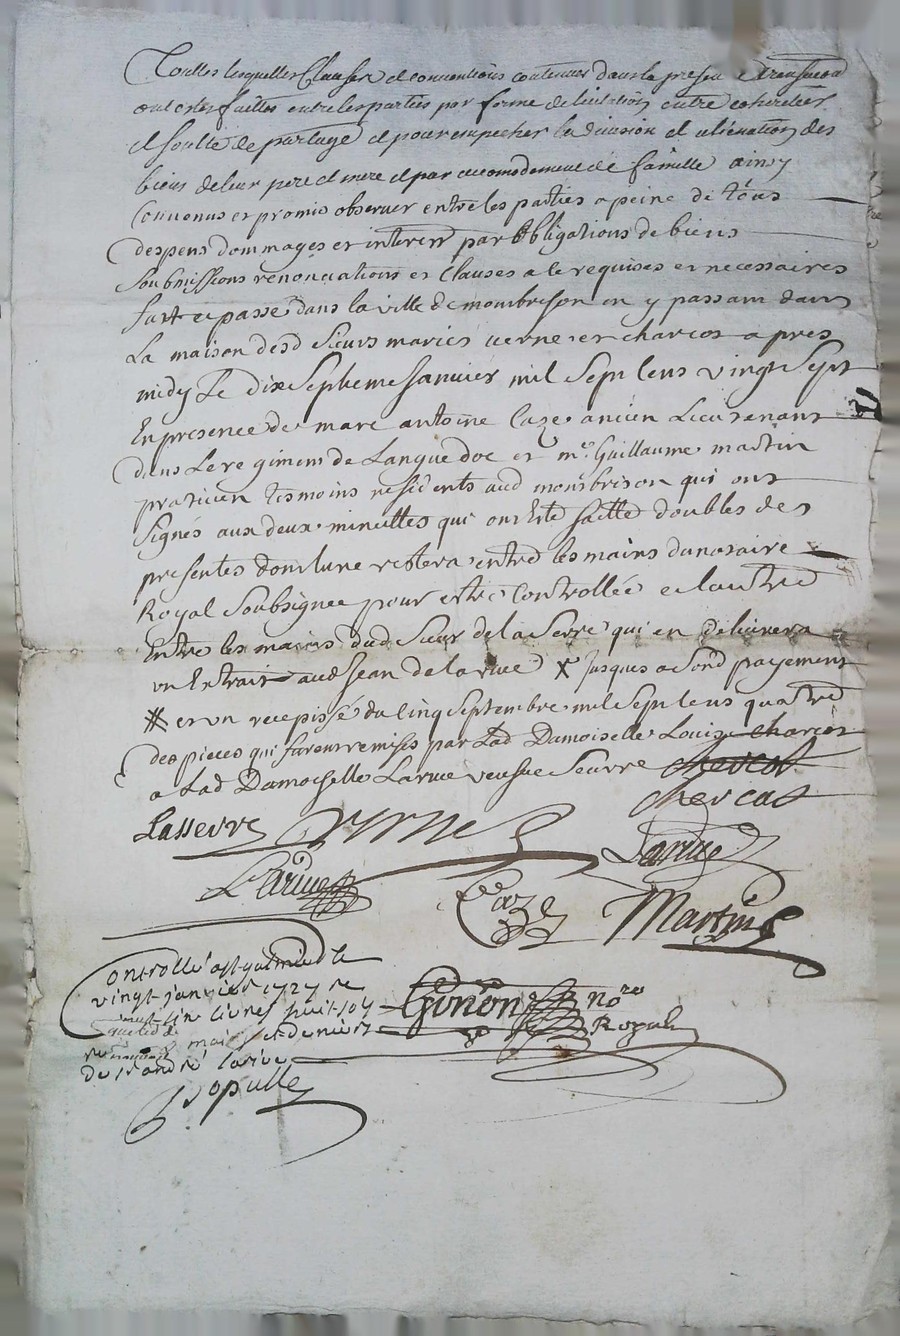 Touttes lesquelles Clauses et conventions contenues dans la presen
ont estes faittes entre les parties par forme de licitation entre coheritiers
et soulte de partage et pour empecher la division et alienation des
biens de leur pere et mere et par accomodement de famille ainsy
Convenus et promis observer entre les parties a peine de tous
despens dommages et interets par obligations de biens
Soubmissions renonciations et Clauses a le requises et necessaires
fait et passé dans la ville de mombrison en y passant dans
La maison desd Sieurs maries verne et charcot apres
midy Le dix Septieme Janvier mil Sept Cens vingt Sept
En presence de marc antoine Caze ancien Lieutenant
dans Le regiment de Languedoc et me Guillaume martin
praticien tesmoins residents aud mombrison qui ont
Signés aux deux minuttes qui ont Esté faitte doubles des
presentes dont lune restera entre les mains du notaire
Royal Soubsigné pour estre Controllée et lautre
Entre les mains dud Sieur de la Serre qui en delivrera
un Extrait aud Jean de la rue X jusques a Son payement
# et un recepissé du Cinq Septembre mil Sept Cens quatre
des pieces qui furent remises par Lad Damoiselle Louise charcot
a Lad Damoiselle Larue veufve Seurre
chercot
Lasserre Verne
Larue
Larue Caze Martin
Controllé
vingt janvier 1727 re
livres huit sols
Gonon no.re
Royal
de st andré larue